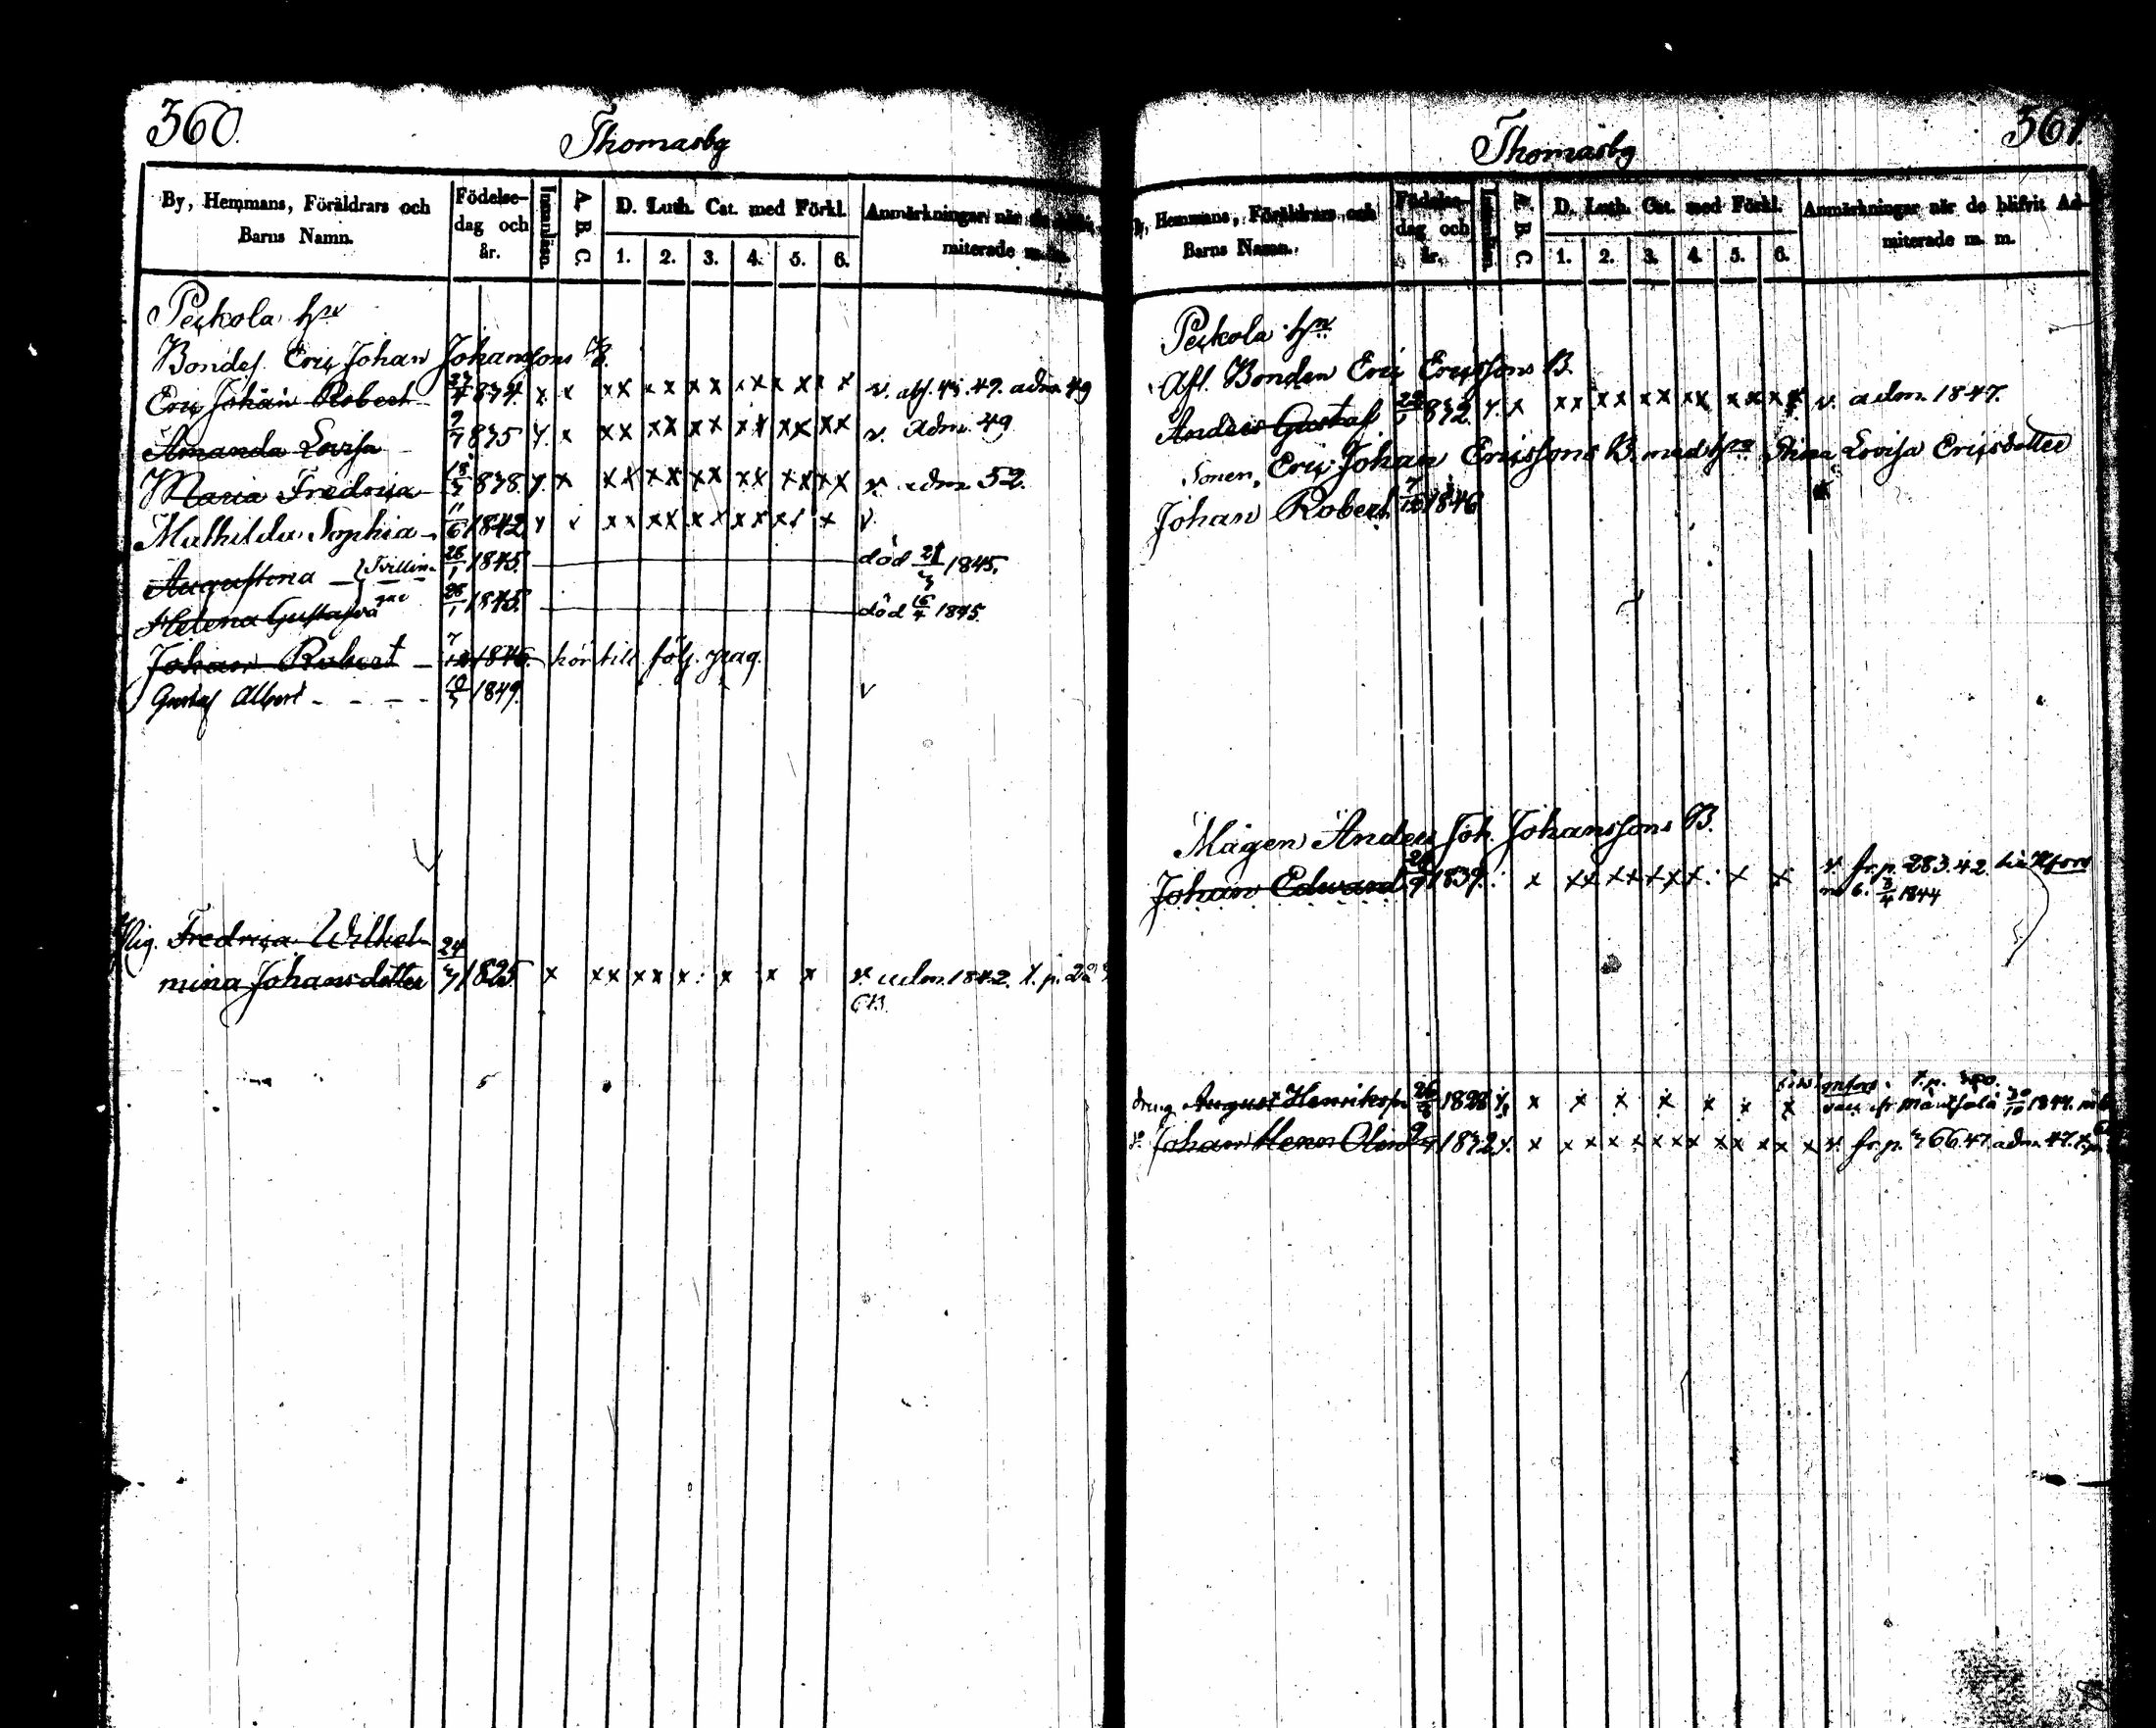 360.
Thomasby
By, Hemmans, Föräldrars och Barns Namn.
Födelse-dag och år.
Innanläsn.
A. B. C.
D. Luth. Cat. med Förkl.
1. 2. 3. 4. 5. 6.
Anmärkningar när de miterade
Peckola hn
Bondes. Eric Johan Johanssons B.
Eric Johan Robert 27/4 834. x x xx xx xx xx xx x x v. 49. adm. 49
Amanda Lovisa 9/7 835 x xx xx xx xx xx xx v. adm. 49
Maria Fredrica 15/3 838. x xx xx xx xx xx xx v. adm. 52.
Mathilda Sophia 11/6 1842 xx xx xx xx x v
Augustina Tvillin- 26/1 1845. död 21/3 1845.
Helena Gustafva gar 26/1 1845. död 16/4 1845.
Johan Robert 7/12 1846. hör till följ. pag.
Gustaf Albert 10/3 1849. v
Pig. Fredrica Wilhel-
mina Johansdotter 24/3 1825 x xx xx x: x x x v. adm. 1842.
361.
Thomasby
Hemmans, Föräldrars och Barns Namn.
Födelse-dag och år.
A. B. C.
D. Luth. Cat. med Förkl.
1. 2. 3. 4. 5. 6.
Anmärkningar när de blifvit Ad-miterade m. m.
Peckola hn
Afl. Bonden Eric Ericssons B.
Anders Gustaf 22/1 832. x xx xx xx xx xx v. adm. 1847.
Sonen, Eric Johan Ericssons B. med Stina Lovisa Ericsdotter
Johan Robert 7/12 1846
Mågen Anders Joh. Johanssons B.
Johan Edvard 1839. x xx xx xx x: x x v. fr. p. 283. 42.
3/4 1844
dreng August Henrikss. 26 1828 x x x x x x x fr. Mäntsälä 30/10 1844.
Johan Henr. Olin 1832 x. x x x x x x x x xx x x x v. fr. p. 366. 47. adm. 47.